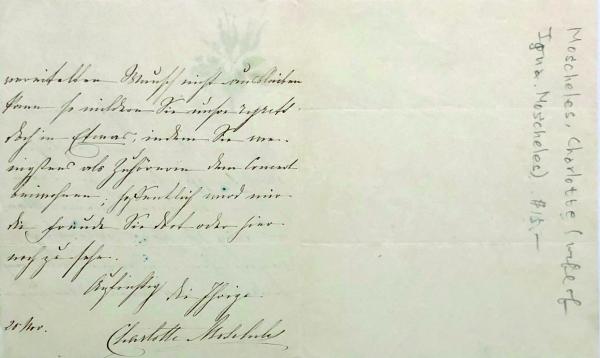 vereitelten Wunsch nicht ausbleiben
kann so mildern Sie unsre regrets
doch in Etwas, indem Sie we-
nigstens als Zuhörerin dem Concert
beiwohnen; hoffentlich wird mir
die Freude Sie dort oder hier
noch zu sehn.
Aufrichtig die Ihrige
20 Nov.
Charlotte Moscheles
Moscheles, Charlotte (wife of
Igna. Moscheles) $15.—